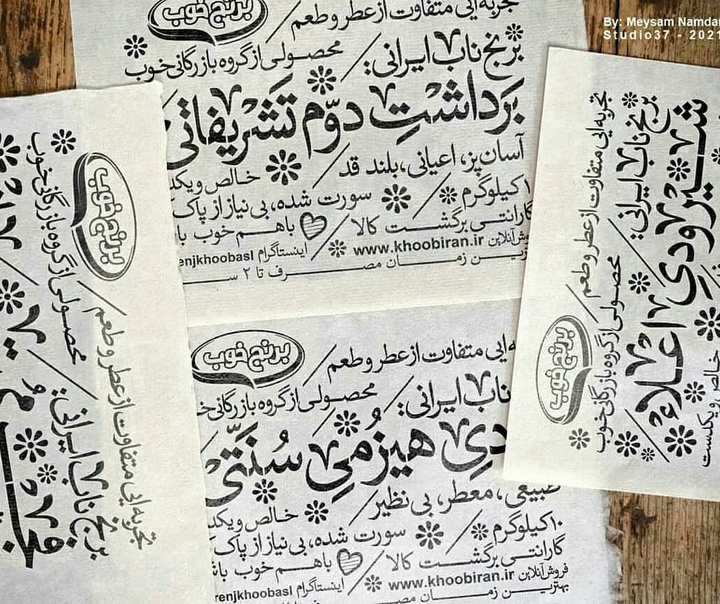 By: Meysam Namdar
Studio37 - 2021
برنج خوب
تجربه‌ایی متفاوت از عطر و طعم
محصولی از گروه بازرگانی خوب
برنج ناب ایرانی:
برداشتِ دوّم تَشریفاتی
آسان‌پز، اعیانی، بلند قد
خالص و یکد
۱۰ کیلوگرم
سورت شده، بی نیاز از پاک
گارانتی برگشت کالا
باهم خوب با
فروش آنلاین www.khoobiran.ir
اینستاگرام renjkhoobasl
بهترین زمان مصرف تا ۲ س
برنج خوب
ه‌ایی متفاوت از عطر و طعم
محصولی از گروه بازرگانی خ
ناب ایرانی:
دیِ هیزُمیِ سُنَتّی
طبیعی، معطر، بی نظیر
خالص و یکد
۱۰ کیلوگرم
سورت شده، بی نیاز از پاک
گارانتی برگشت کالا
باهم خوب با
فروش آنلاین www.khoobiran.ir
اینستاگرام renjkhoobasl
بهترین زمان مص
برنج خوب
تجربه‌ایی متفاوت از عطر و طعم
محصولی از گروه بازرگانی خوب
برنج ناب ایرانی:
برنج خوب
تجربه‌ایی متفاوت از عطر و طعم
محصولی از گروه بازرگانی خوب
برنج ناب ایرانی:
شیرودیِ اعلاء
خالص و یکدست